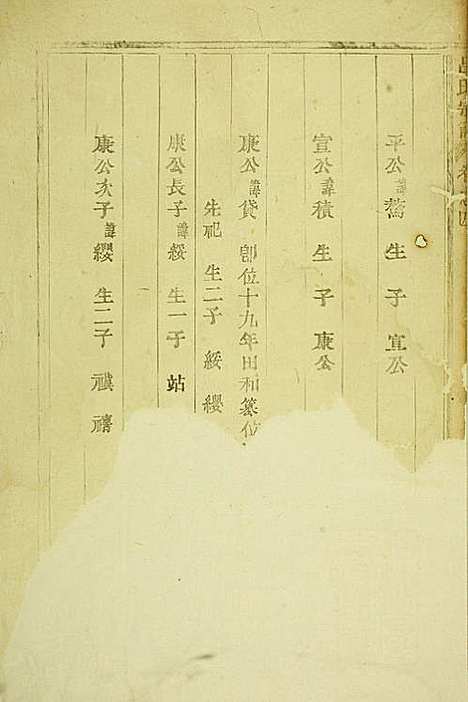 平公諱驁生子宣公
宣公諱積生子康公
康公諱貸即位十九年田和篡位
先祀生二子綏纓
康公長子諱綏生一子站
康公次子諱纓生二子禛禧